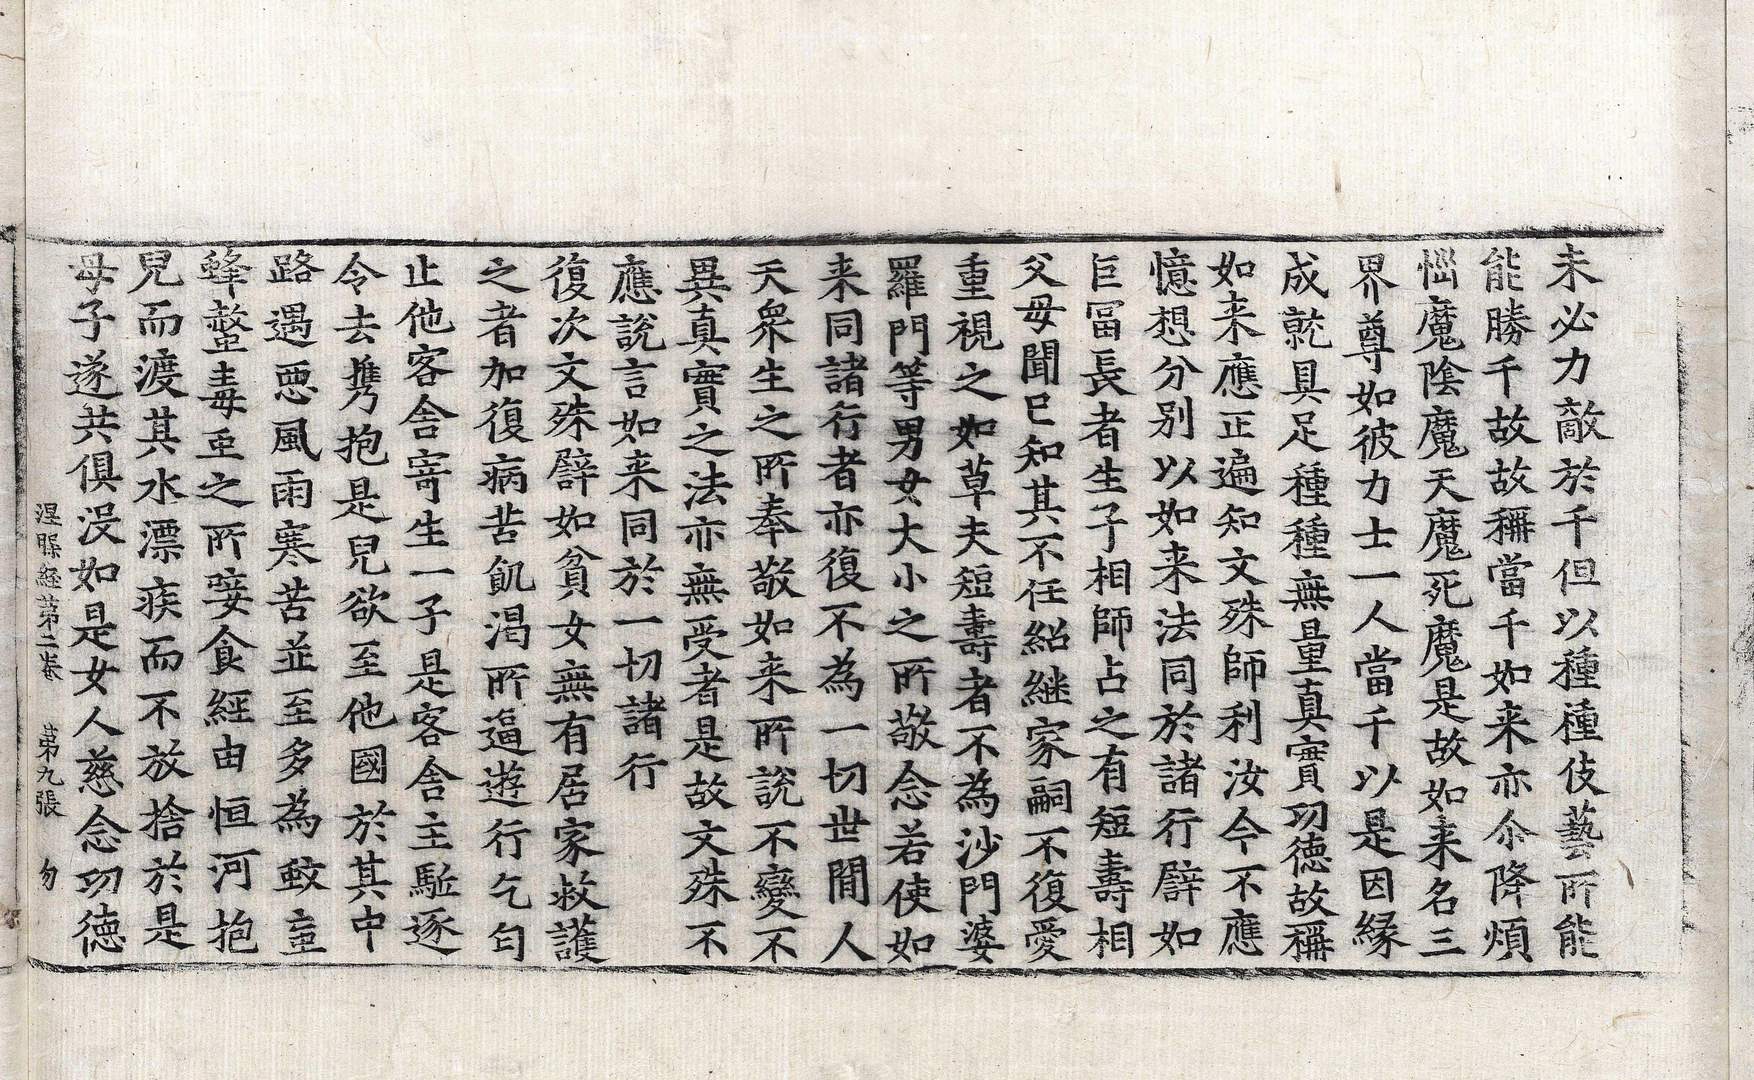 未必力敵於千但以種種伎藝所能
能勝千故故稱當千如来亦尒降煩
惱魔陰魔天魔死魔是故如来名三
界尊如彼力士一人當千以是因緣
成就具足種種無量真實功德故稱
如来應正遍知文殊師利汝今不應
憶想分别以如来法同於諸行譬如
巨冨長者生子相師占之有短壽相
父母聞已知其不任紹継家嗣不復愛
重視之如草夫短壽者不為沙門婆
羅門等男女大小之所敬念若使如
来同諸行者亦復不為一切世間人
天衆生之所奉敬如来所說不變不
異真實之法亦無受者是故文殊不
應說言如来同於一切諸行
復次文殊譬如貧女無有居家救護
之者加復病苦飢渴所逼遊行乞匂
止他客舎寄生一子是客舎主駈逐
令去携抱是兒欲至他國於其中
路遇惡風雨寒苦並至多為蚊䖝
蜂螫毒䖝之所唼食經由恒河抱
兒而渡其水漂疾而不放捨於是
母子遂共俱没如是女人慈念功德
涅槃經第二卷 第九張 勿